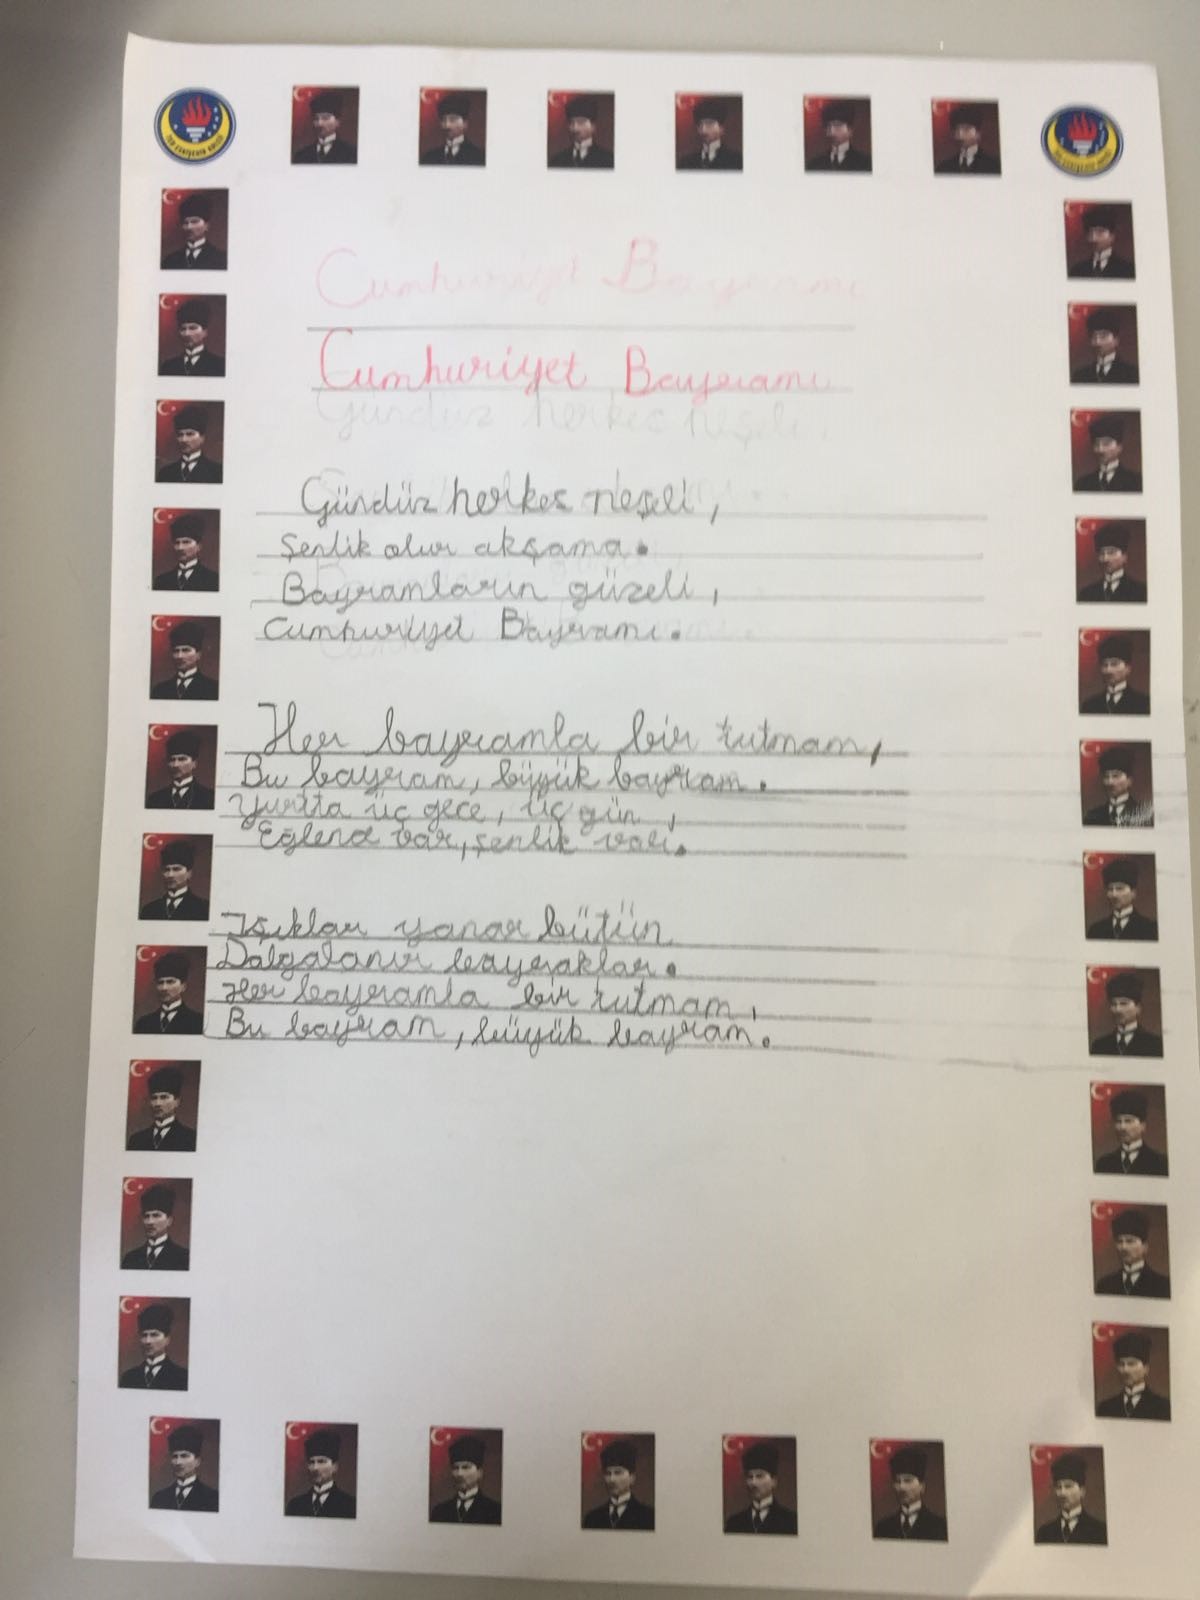 Cumhuriyet Bayramı
Cumhuriyet Bayramı
Gündüz herkes neşeli.
Gündüz herkes neşeli,
Şenlik olur akşama.
Bayramların güzeli,
Cumhuriyet Bayramı.
Her bayramla bir tutmam,
Bu bayram, büyük bayram.
Yurtta üç gece, üç gün,
var, şenlik var.
Işıklar yanar bütün
Dalgalanır bayraklar.
Her bayramla bir tutmam,
Bu bayram, büyük bayram.